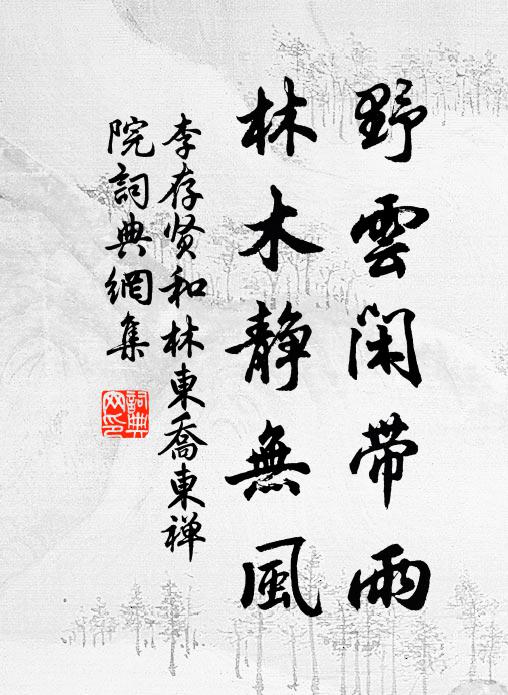 野雲閑帶雨
林木靜無風
李存贤和林東喬東禅
院詞典網集
詞典
网印